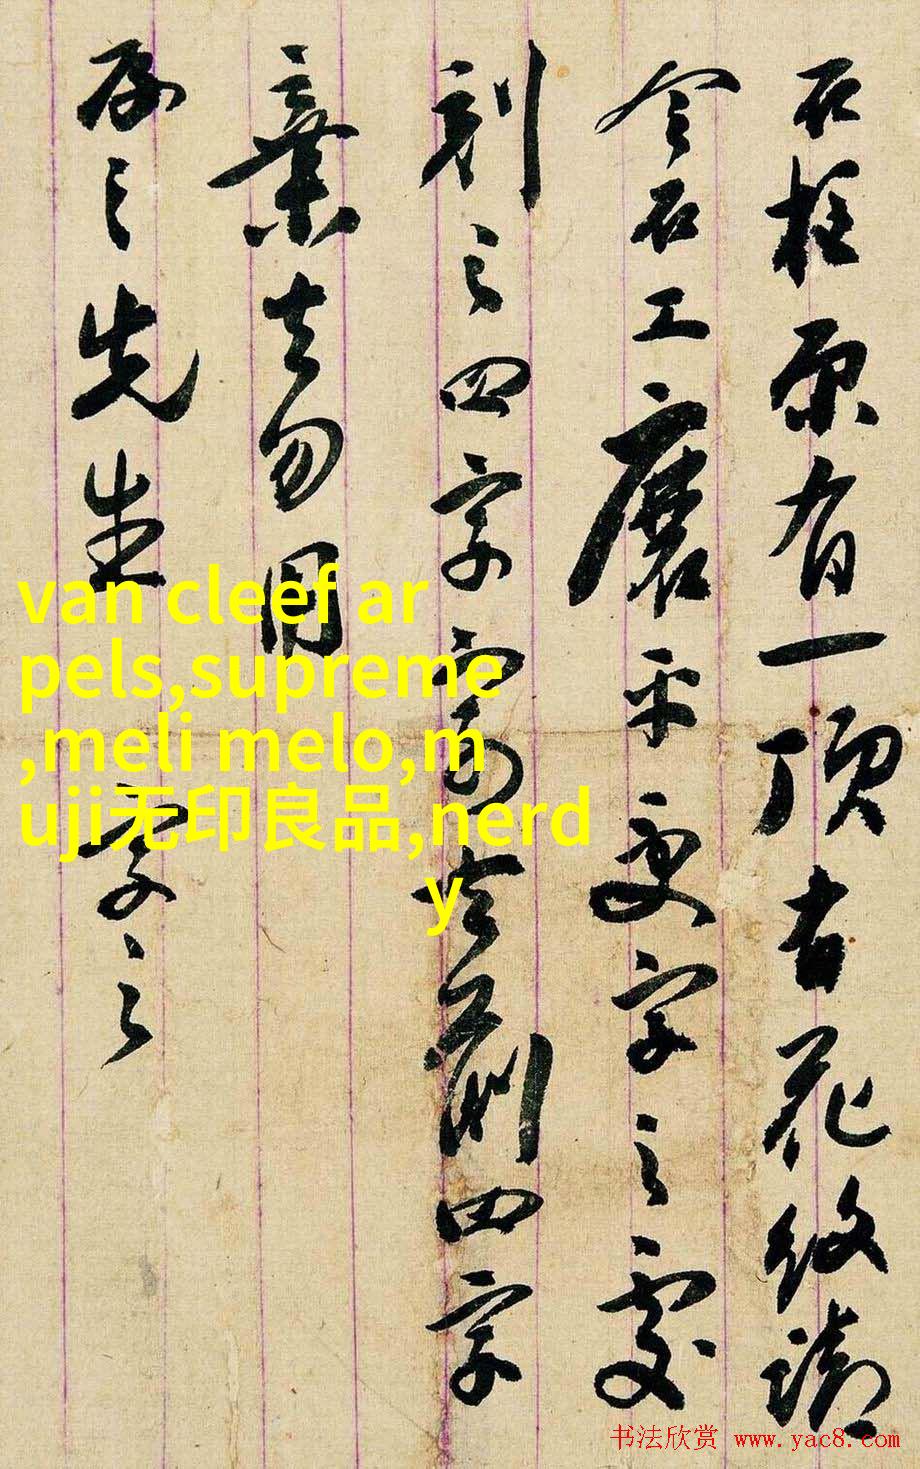 石柱原有一頂花紋請
令石工磨平更字之處
刻之四字寄去前四字
棄去勿用
之先生 字之
van cleef ar
pels,supreme
,meli melo,m
uji无印良品,nerd
y
书法欣赏 www.yac8.com